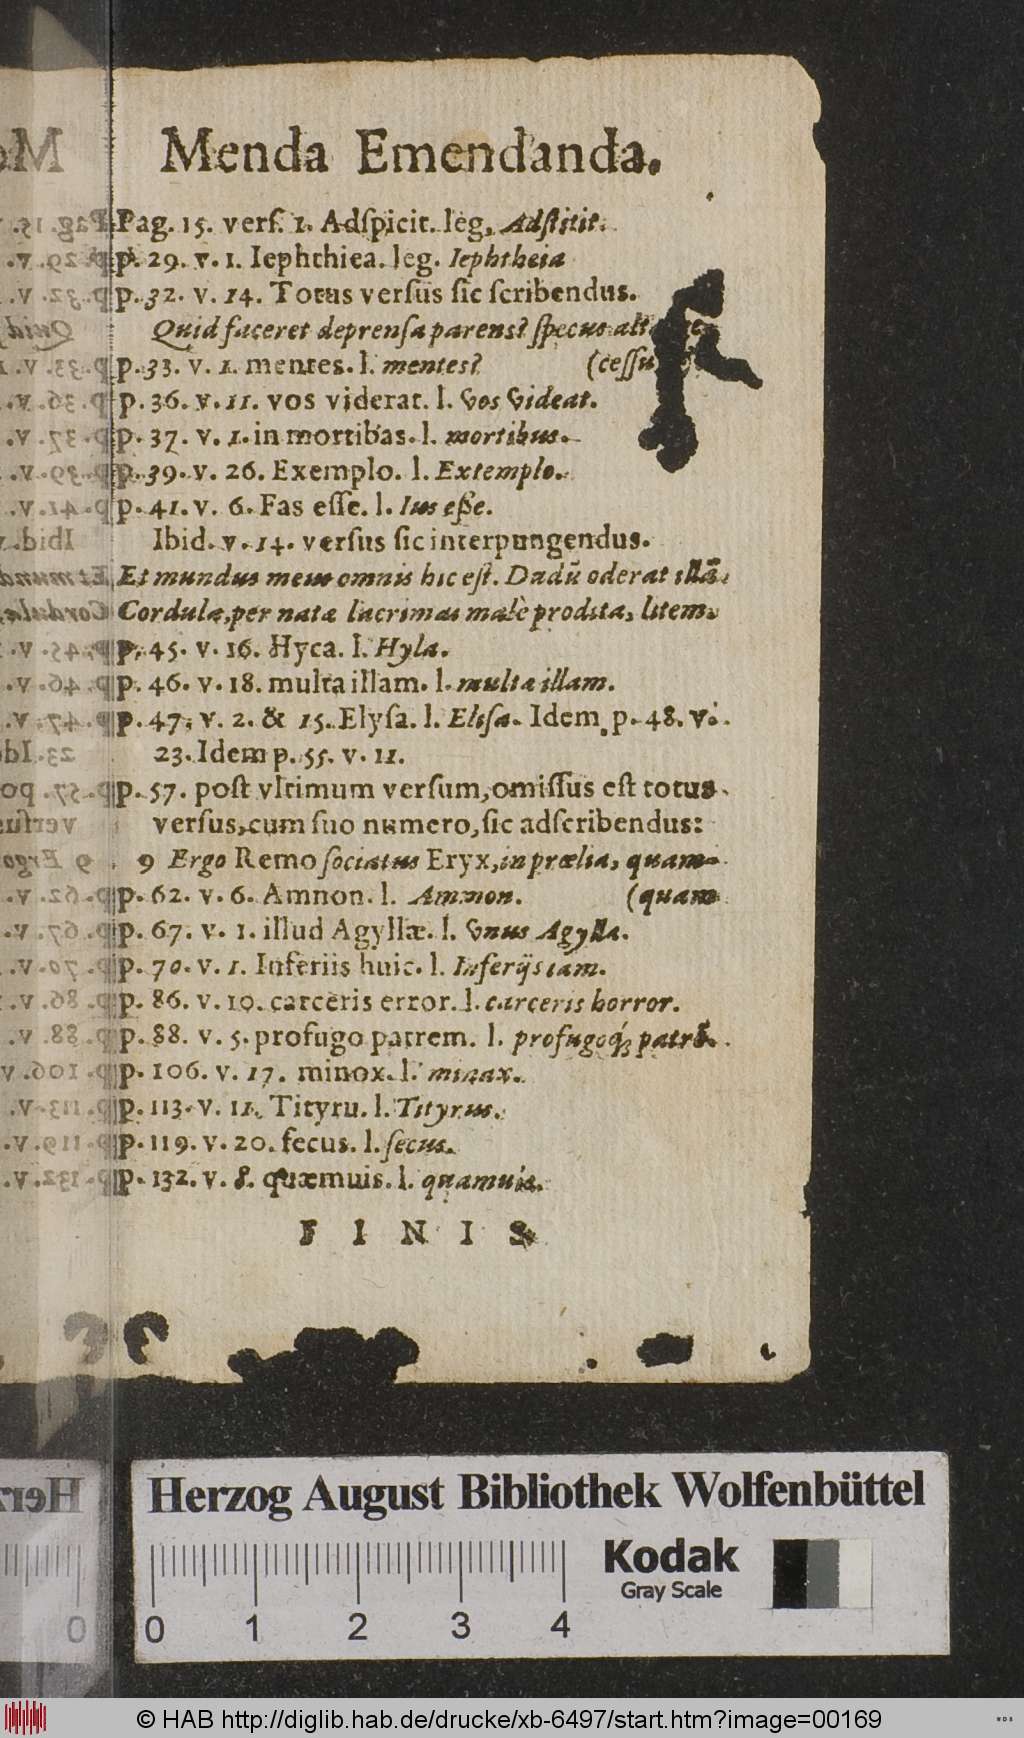 Menda Emendanda.
Pag. 15. verſ. 1. Adſpicit. leg. Adſtitit.
p. 29. v. 1. Iephthiea. leg. Iephtheia
p. 32. v. 14. Totus verſus ſic ſcribendus.
Quid faceret deprenſa parens? ſpecus
p. 33. v. 1. mentes. l. mentes? (ceſſu
p. 36. v. 11. vos viderat. l. vos videat.
p. 37. v. 1. in mortibas. l. mortibus.
p. 39. v. 26. Exemplo. l. Extemplo.
p. 41. v. 6. Fas eſſe. l. Ius eße.
Ibid. v. 14. verſus ſic interpungendus.
Et mundus meus omnis hic eſt. Dudũ oderat illã,
Cordulæ, per natæ lacrimas malè prodita, litem.
p. 45. v. 16. Hyca. l. Hyla.
p. 46. v. 18. multa illam. l. multa illam.
p. 47. v. 2. & 15. Elyſa. l. Eliſa. Idem p. 48. v.
23. Idem p. 55. v. 11.
p. 57. poſt vltimum verſum, omiſſus eſt totus
verſus, cum ſuo numero, ſic adſcribendus:
9 Ergo Remo ſociatus Eryx, in prœlia, quam-
p. 62. v. 6. Amnon. l. Ammon. (quam
p. 67. v. 1. illud Agyllæ. l. vnus Agylla.
p. 70. v. 1. Inferiis huic. l. Inferijs iam.
p. 86. v. 10. carceris error. l. carceris horror.
p. 88. v. 5. profugo patrem. l. profugoq́; patrẽ.
p. 106. v. 17. minox. l. minax.
p. 113. v. 11. Tityru. l. Tityrus.
p. 119. v. 20. fecus. l. ſecus.
p. 132. v. 8. quæmuis. l. quamuis.
FINIS
Herzog August Bibliothek Wolfenbüttel
Kodak
Gray Scale
0 1 2 3 4
© HAB http://diglib.hab.de/drucke/xb-6497/start.htm?image=00169